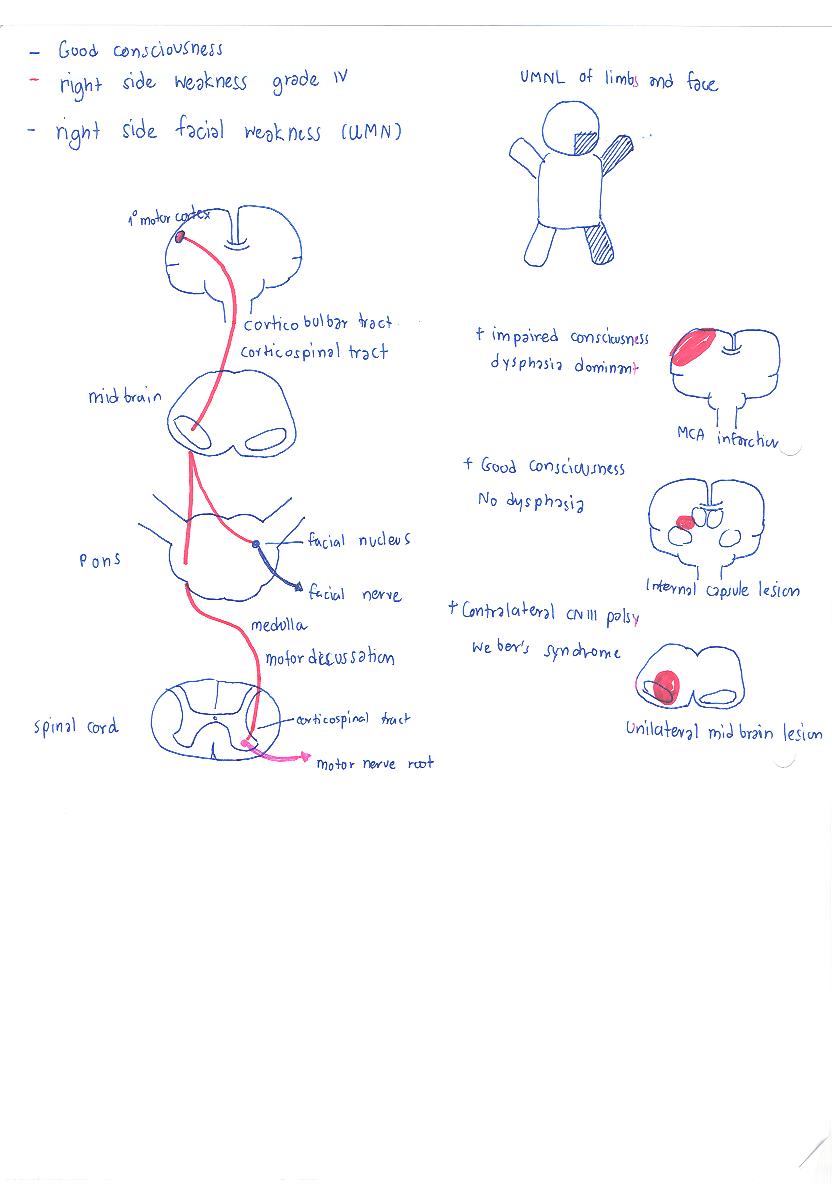 - Good consciousness
- right side weakness grade IV
- right side facial weakness (UMN)
UMNL of limbs and face
1° motor cortex
corticobulbar tract
corticospinal tract
midbrain
Pons
facial nucleus
facial nerve
medulla
motor decussation
spinal cord
corticospinal tract
motor nerve root
+ impaired consciousness
dysphasia dominant
MCA infarction
+ Good consciousness
No dysphasia
Internal capsule lesion
+ Contralateral CN III palsy
Weber's syndrome
Unilateral midbrain lesion